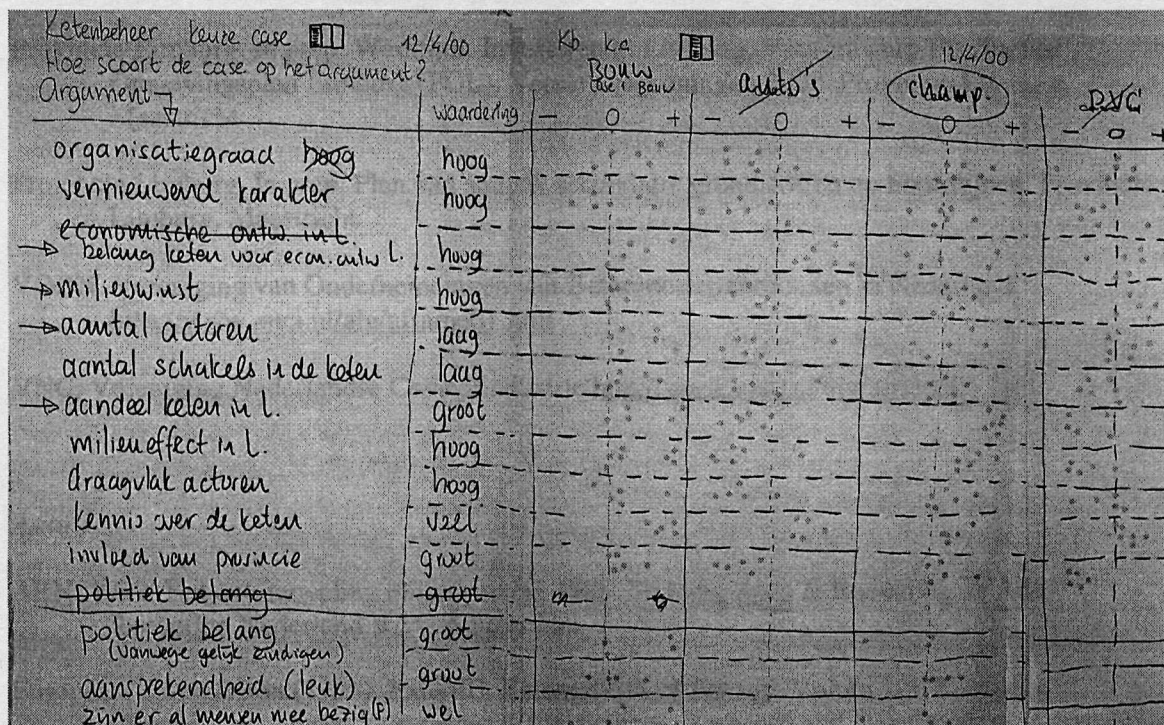 Ketenbeheer keuze case 12/4/00 Kb. k.c 12/4/00
Hoe scoort de case op het argument?
Argument
waardering
Bouw
case: Bouw
auto's
champ.
PVC
- 0 + - 0 + - 0 + - 0 +
organisatiegraad hoog hoog
vernnieuwend karakter hoog
economische ontw. in L.
belang keten voor econ. ontw L. hoog
milieuwinst hoog
aantal actoren laag
aantal schakels in de keten laag
aandeel keten in L. groot
milieueffect in L. hoog
draagvlak actoren hoog
kennis over de keten veel
invloed van provincie groot
politiek belang groot
politiek belang groot
(vanwege gelijk eindigen)
aansprekendheid (leuk) groot
zijn er al mensen mee bezig (P) wel